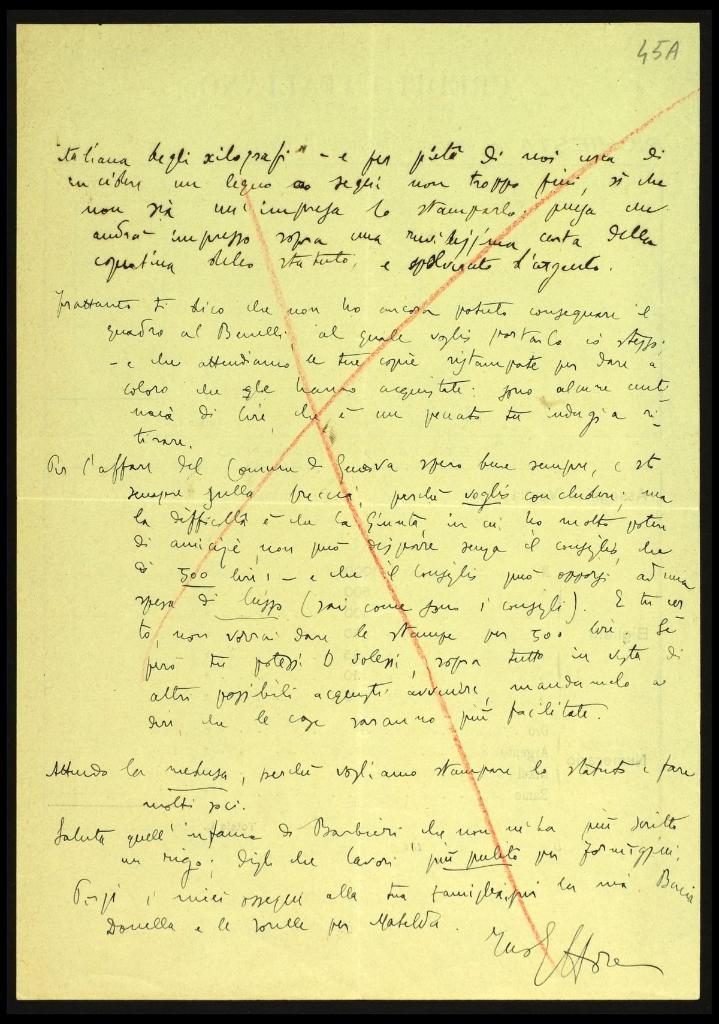 45A
italiana degli xilografi" - e per pietà di noi cerca di
incidere un legno a segni non troppo fini, sì che
non sia un'impresa lo stamparlo: pensa che
andrà impresso sopra una ruvidissima carta della
copertina dello statuto, e spolverato d'argento.
Frattanto ti dico che non ho ancora potuto consegnare il
quadro al Benelli, al quale voglio portarlo io stesso;
- e che attendiamo le tue copie ristampate per dare a
coloro che gle hanno acquistate: sono alcune centi-
naia di lire, che è un peccato tu indugi a ri-
tirare.
Per l'affare del Comune di Genova spero bene sempre, e sto
sempre sulla breccia, perché voglio concludere; ma
la difficoltà è che la Giunta, in cui ho molto potere
di amicizie, non può disporre senza il consiglio, che
di 500 lire! - e che il Consiglio può opporsi ad una
spesa di lusso (sai come sono i consigli). E tu cer
to, non vorrai dare le stampe per 500 lire. Se
però tu potessi o volessi, sopra tutto in vista di
altri possibili acquisti avvenire, mandamelo a
dire, che le cose saranno più facilitate.
Attendo la medusa, perché vogliamo stampare lo statuto e fare
molti soci.
Saluta quell'infame di Barbieri che non mi ha più scritto
un rigo; digli che lavori più pulito per Formiggini.
Porgi i miei ossequi alla tua famiglia, per la mia. Bacia
Donella e le sorelle per Matelda.
Tuo Ettore